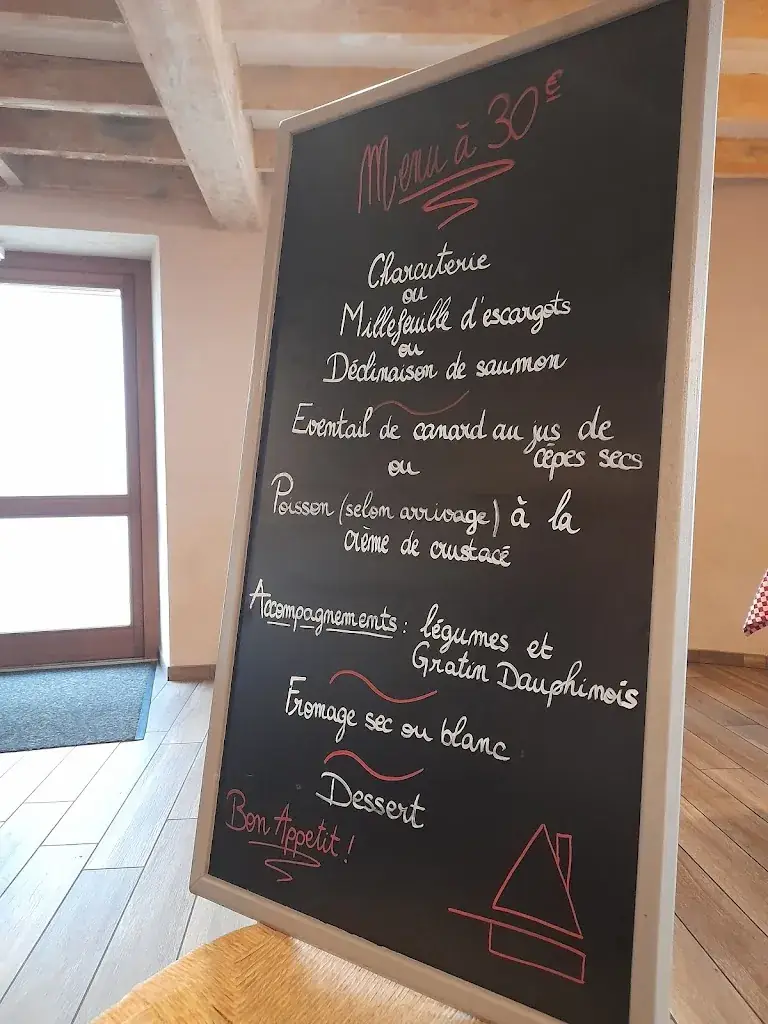 Menu à 30€
Charcuterie
ou
Millefeuille d'escargots
ou
Déclinaison de saumon
Eventail de canard au jus de
cèpes secs
ou
Poisson (selon arrivage) à la
crème de crustacé
Accompagnements : légumes et
Gratin Dauphinois
Fromage sec ou blanc
Dessert
Bon Appetit !